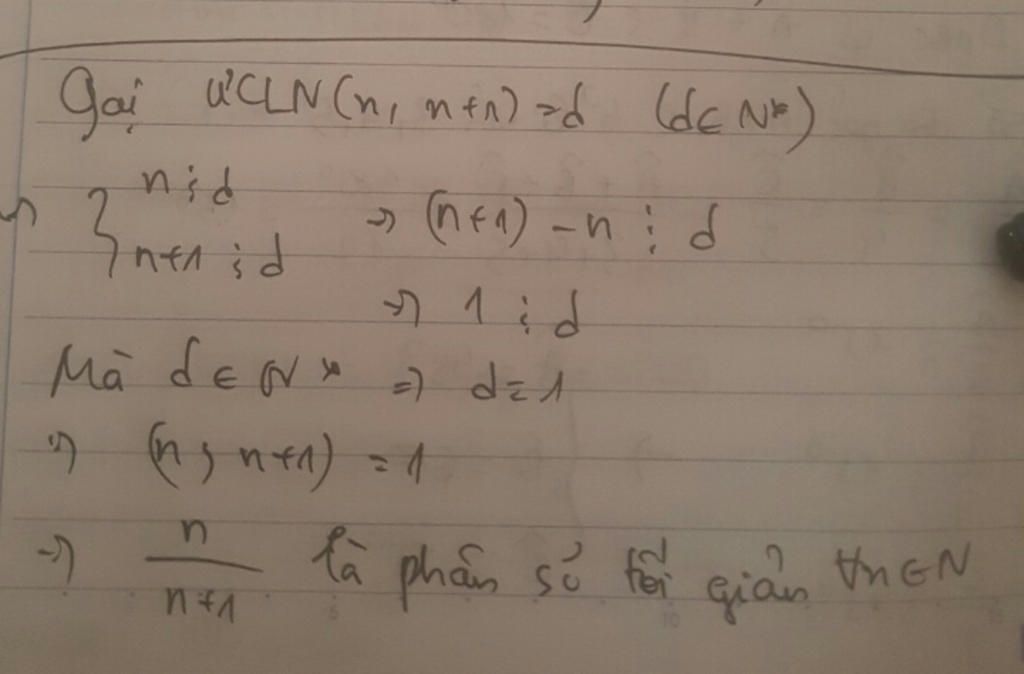 Gọi ƯCLN(n, n+1) = d (d ∈ N*)
⇒ { n ⋮ d
n+1 ⋮ d ⇒ (n+1) - n ⋮ d
⇒ 1 ⋮ d
Mà d ∈ N* ⇒ d = 1
⇒ (n; n+1) = 1
⇒ n/(n+1) là phân số tối giản ∀n ∈ N